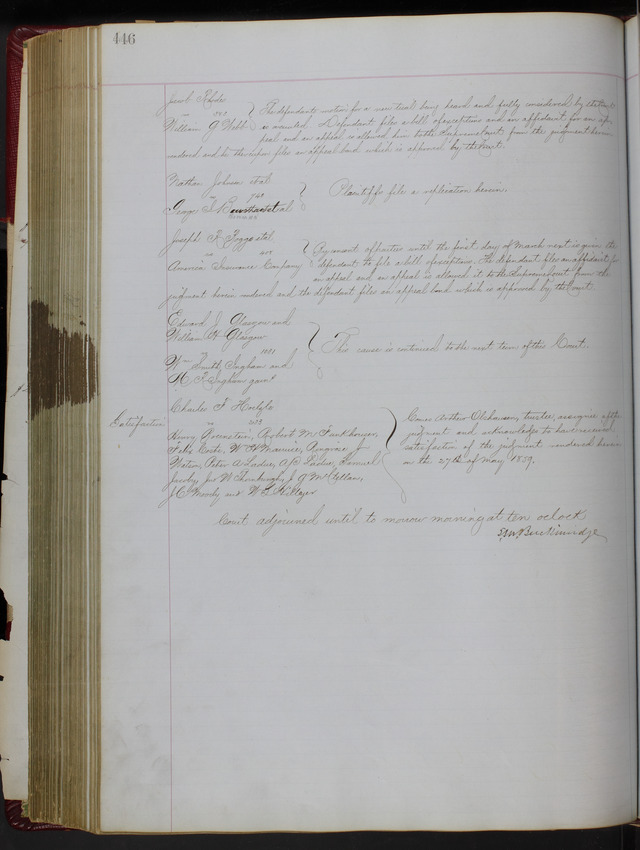 446
Jacob Rhodes
vs
William G Webb
The defendants motion for a new trial being heard and fully considered by the Court
is overruled. Defendant files a bill of exceptions and an affidavit for an ap-
peal and an appeal is allowed him to the Supreme Court from the judgment herein
rendered and he thereupon files an appeal bond which is approved by the Court.
Nathan Johnson et al
vs
George et al
Plaintiffs file a replication herein.
Joseph et al
vs
America Insurance Company
By consent of parties until the first day of March next is given the
defendant to file a bill of exceptions. The defendant files an affidavit for
an appeal and an appeal is allowed it to the Supreme Court from the
judgment herein rendered and the defendant files an appeal bond which is approved by the Court.
Edward J. Glasgow and
William H Glasgow
vs
Wm Smith, Ingham and
Ingham garnt
This cause is continued to the next term of this Court.
Satisfaction
Charles F
vs
Henry Robert M Funkhouser,
Felix Coste, W H Maurice,
Watson, Peter A Ladue, A/C Ladue, Samuel
Jacoby, Jno N J G McClellan,
J C Moody and W
Comes Arthur Olshausen, trustee, assignee of the
judgment and acknowledges to have received
satisfaction of the judgment rendered herein
on the 27th of May 1859.
Court adjourned until to morrow morning at ten oclock
S M Breckinridge